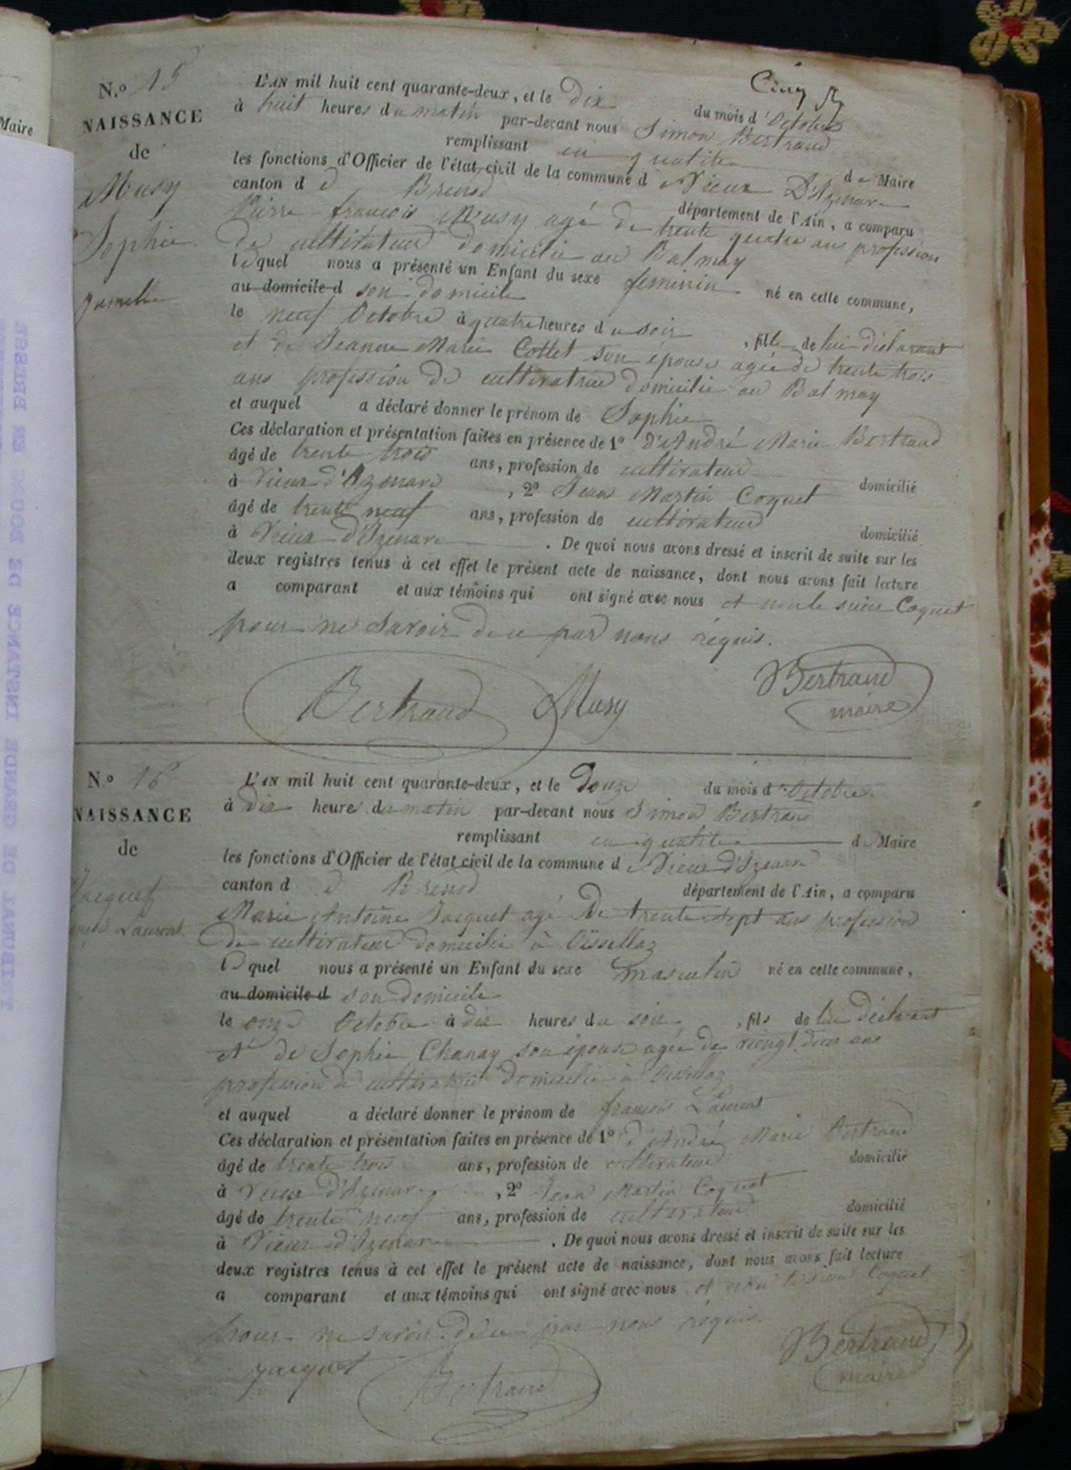 Maire
Cinq
N.o 15
NAISSANCE
de
Musy
Sophie
Jumelle
L'AN mil huit cent quarante-deux, et le dix du mois d'Octobre
à huit heures du matin par-devant nous Simon Bertrand
remplissant en qualité de Maire
les fonctions d'Officier de l'état civil de la commune d Vieux D'Izenave
canton d Brenod département de l'Ain, a comparu
Pierre françois Musy agé de trente quatre ans profession
de cultivateur domicilié au Balmay
lequel nous a présenté un Enfant du sexe feminin né en cette commune,
au domicile d son domicile
le neuf Octobre à quatre heures du soir , fille de lui déclarant
et de Jeanne Marie Collet son épouse agée de trente trois
ans profession de cultivatrice domicilié au Balmay
et auquel a déclaré donner le prénom de Sophie
Ces déclaration et présentation faites en présence de 1o d'André Marie Bertrand
âgé de trente trois ans, profession de cultivateur domicilié
à Vieux d'Izenave , 2o Jean Martin Coquet
âgé de trente neuf ans, profession de cultivateur domicilié
à Vieux d'Izenave . De quoi nous avons dressé et inscrit de suite sur les
deux registres tenus à cet effet le présent acte de naissance, dont nous avons fait lecture
a comparant et aux témoins qui ont signé avec nous et non le sieur Coquet
pour ne savoir de ce par nous réquis.
Bertrand Musy Bertrand
maire
N.o 16
NAISSANCE
de
Jacquet
Laurent
L'AN mil huit cent quarante-deux, et le Douze du mois d'Octobre
à dix heures du matin par-devant nous Simon Bertrand
remplissant en qualité de Maire
les fonctions d'Officier de l'état civil de la commune d Vieux d'Izenave
canton d Brenod département de l'Ain, a comparu
Marie Antoine Jacquet agé De trente sept ans profession
de cultivateur domicilié à Oisselaz
lequel nous a présenté un Enfant du sexe masculin né en cette commune,
au domicile d son domicile
le onze Octobre à dix heures du soir , fils de lui déclarant
et de Sophie Chanay son épouse agée de vingt deux ans
profession de cultivatrice domicilié à
et auquel a déclaré donner le prénom de françois Laurent
Ces déclaration et présentation faites en présence de 1o d'André Marie Bertrand
âgé de trente trois ans, profession de cultivateur domicilié
à Vieux d'Izenave , 2o Jean Martin Coquet
âgé de trente neuf ans, profession de cultivateur domicilié
à Vieux d'Izenave . De quoi nous avons dressé et inscrit de suite sur les
deux registres tenus à cet effet le présent acte de naissance, dont nous avons fait lecture
a comparant et aux témoins qui ont signé avec nous et non le sieur Coquet
pour ne savoir de ce par nous réquis
Jacquet Bertrand Bertrand
maire
TRIBUNAL DE GRANDE INSTANCE DE BOURG EN BRESSE